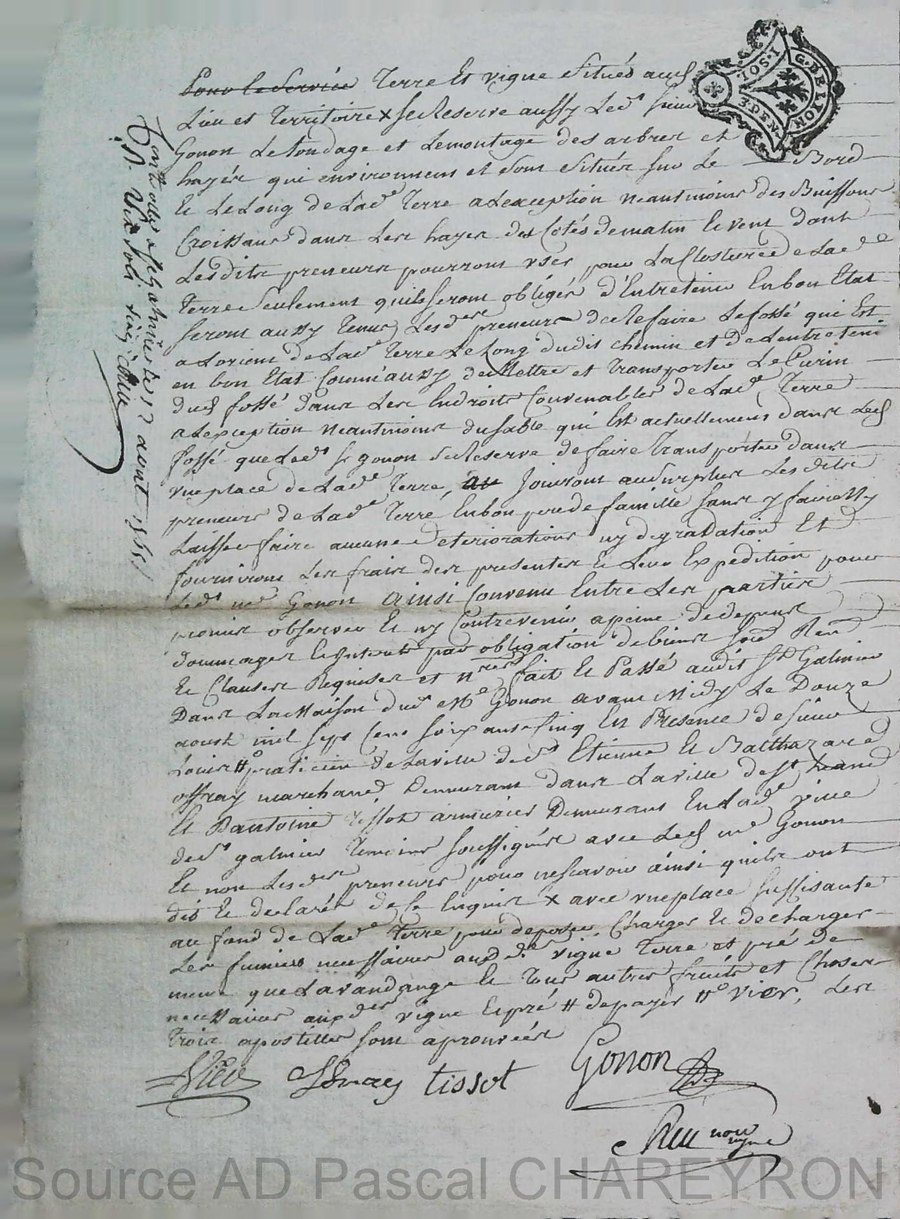 Pour le Service Terre Et vigne Situés aud
Lieu et Territoire x Se Reserve aussy Led. Sieur
Gonon Le tondage et Lemontage des arbres et
hayes qui environnent et sont Situés sur Le Bord
Et Le Long de Lad. Terre alexception neantmoins des Buissons
Croissans dans Les hayes des Cotés dematin Et vent dont
Lesdits preneurs pourront user pour La Closture de Lad.
Terre Seulement quils seront obligés d'Entretenir En bon Etat
Seront aussy tenus Lesd. preneurs de refaire Le fossé qui Est
a Lorient de Lad. Terre Le Long dudit chemin et de Lentretenir
en bon Etat Comm'aussy de Mettre et transporter Le Curin
dud fossé dans Les Endroits Convenables de Lad. Terre
alexception neantmoins du sable qui Est actuellement dans Led
fossé que Led. Sr gonon se Reserve de faire transporter dans
une place de Lad. Terre, Jouiront au surplus Les dits
preneurs de Lad. Terre En bon pere de famille sans y faire Ny
Laisser faire aucune deteriorations ny degradation Et
fourniront Les frais des presentes Et Leur Expedition pour
Led. me Gonon ainsi Convenu Entre Les parties
promis observer Et ny Contrevenir apeine de depens
dommages Et Interets par obligation de biens Ren
Et Clauses Requises et fait Et Passé audit St Galmier
Dans La Maison dud. Me Gonon avant Midy Le Douze
aoust mil sept Cens soixante Cinq En Presence de sieur
Louis # praticien de Laville de St Etienne Et Balthazard
offray marchand Demurant dans Laville de St
Et D'antoine tissot armurier Demurans En Lad. ville
de St galmier Temoins soussignés avec Led me Gonon
Et non Lesd. preneurs pour ne scavoir ainsi quils ont
dit Et declaré de ce Enquis x avec une place suffisante
au fond de Lad. Terre pour deposer, Charger Et decharger
Les fumiers necessaires auxd. vigne Terre et pré de
meme que La vandange Et tous autres fruits et Choses
necessaires auxd. vigne Et pré # de payer #o vier, Les
trois apostilles sont aprouvées
Vier offray tissot Gonon
Controllé a St Galmier le 17 aout 1765
1.SOL
GEN.DE LION
Source AD Pascal CHAREYRON